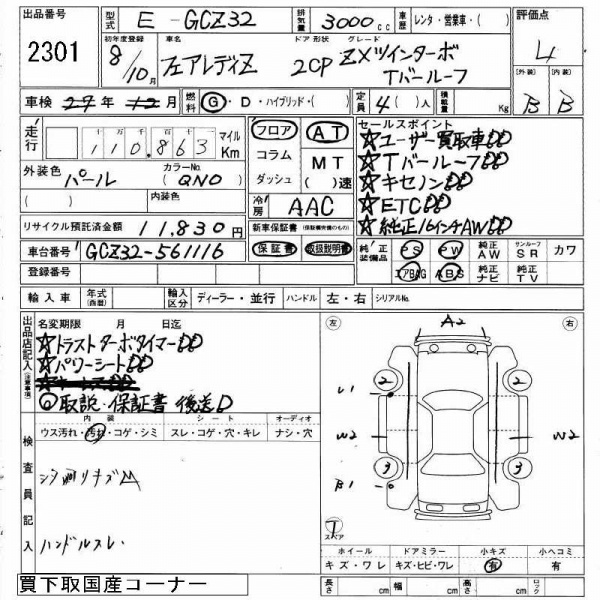 出品番号 2301 型式 E - GCZ32 排気量 3000cc 車歴 レンタ・営業車・( ) 評価点 4
初年度登録 8/10月 車名 フェアレディZ ドア形状 2CP グレード ZXツインターボ Tバールーフ [外装] B [内装] B
車検 27年 12月 燃料 G・D・ハイブリッド・( ) 定員 4( )人 積載量 Kg
走行 十万 万 千 百 十 110.863 マイル Km フロア AT セールスポイント
コラム MT ☆ユーザー買取車
ダッシュ ( )速 ☆Tバールーフ
外装色 パール カラーNo. (QN0) ☆キセノン
( ) 内装色 冷房 AAC ☆ETC
リサイクル預託済金額 11,830円 新車保証書(保証継承の有効なもの) ☆純正16インチAW
車台番号 GCZ32-561116 保証書 取扱説明書 純正装備品 PS PW 純正AW サンルーフSR カワ
登録番号 エアBAG ABS 純正ナビ 純正TV
輸入車 年式(西暦) 輸入区分 ディーラー・並行 ハンドル 左・右 シリアルNo.
出品店記入(注意事項) 名変期限 月 日迄
☆トラストターボタイマー
☆パワーシート
◎取説・保証書 後送
左 A2 右
2 2
U1
W2 W2
3 3
B1
T
スペア
検査員記入 内装 シート オーディオ
ウス汚れ・汚れ・コゲ・シミ スレ・コゲ・穴・キレ ナシ・穴
ハンドルスレ.
ホイール ドアミラー 小キズ 小ヘコミ
キズ・ワレ キズ・ヒビ・ワレ 有 有
買下取国産コーナー 長さ cm 幅 cm 高さ cm ロック